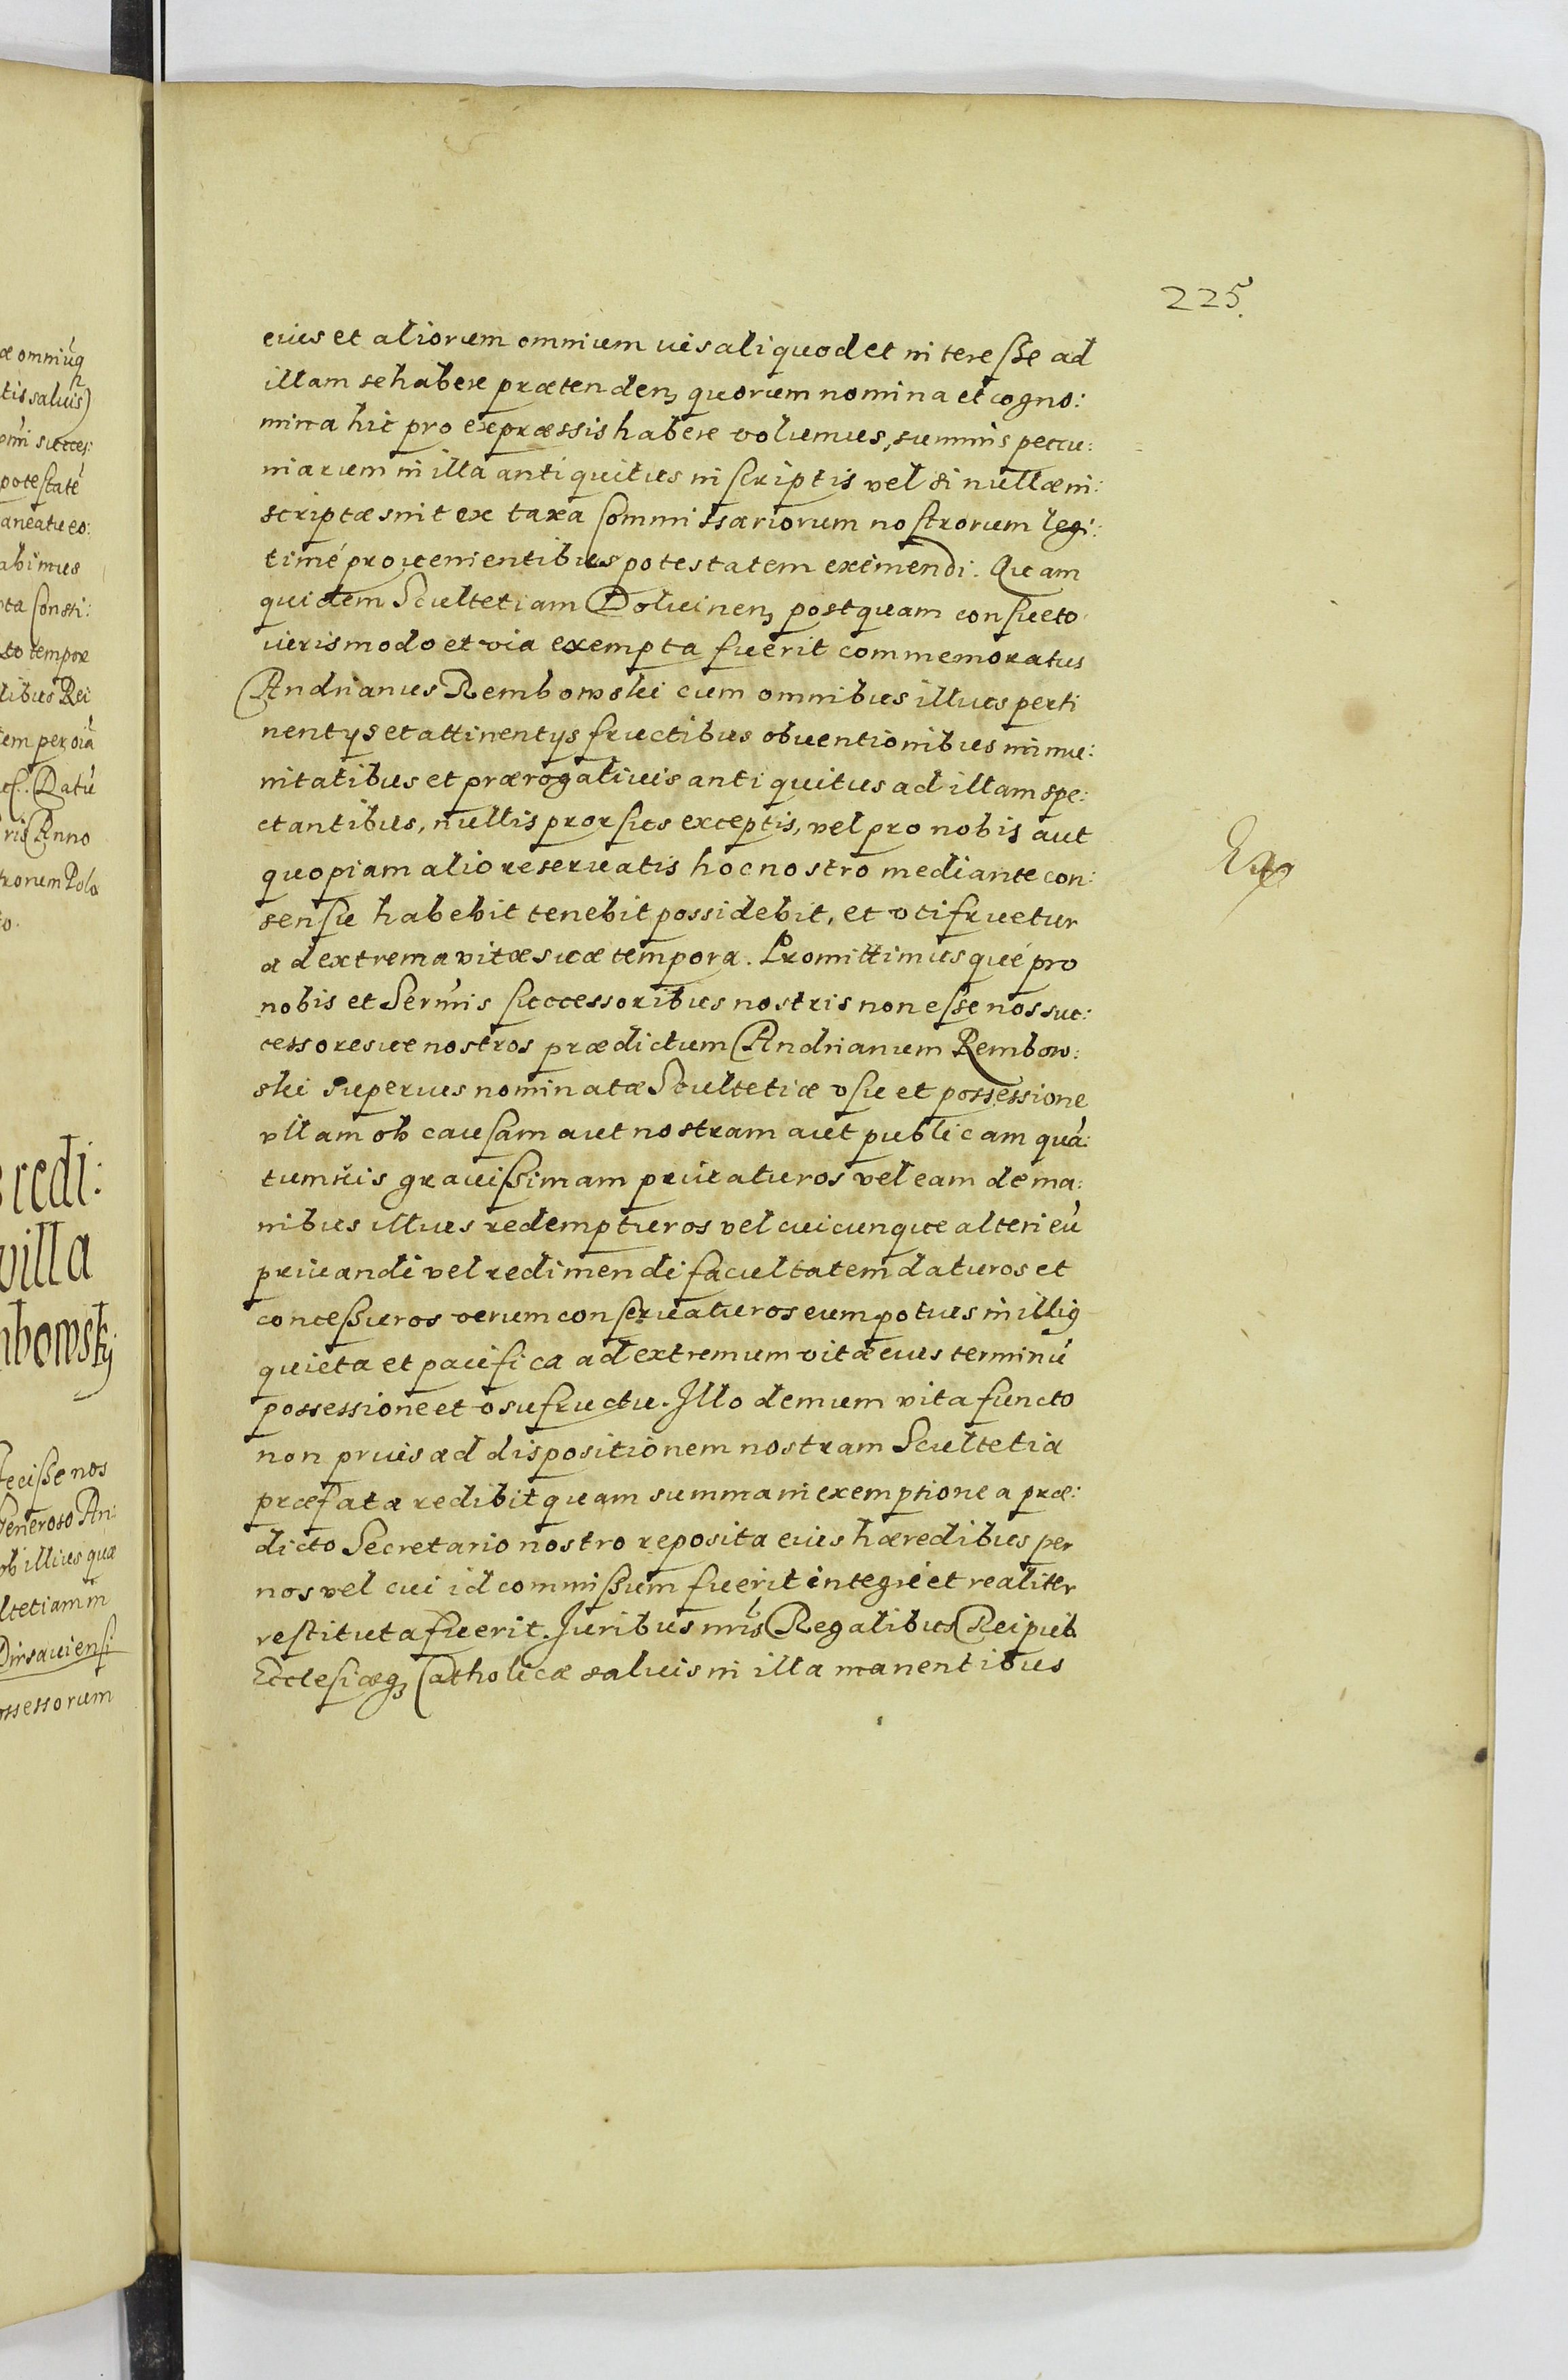 225.
eius et aliorum omnium ius aliquod et interesse ad
illam se habere prætenden, quorum nomina et cogno:
mina hic pro expræssis habere volumus, summis pecu:
niarum in illa antiquitus inscriptis vel si nullæ in:
scriptæ sint ex taxa Commissariorum nostrorum legi:
timé prouenientibus potestatem eximendi. Quam
quidem Scultetiam Doluinen, postquam consueto
iuris modo et via exempta fuerit commemoratus
Andrianus Rembowski cum omnibus illius perti
nentÿs et attinentÿs fructibus obuentionibus immu:
nitatibus et prærogatiuis antiquitus ad illam spe:
ctantibus, nullis prorsus exceptis, vel pro nobis aut
quopiam alio reseruatis hoc nostro mediante con:
sensu habebit tenebit possidebit, et vtifruetur
ad extrema vitæ suæ tempora. Promittimusqué pro
nobis et Sermis successoribus nostris non esse nos suc:
cessoresue nostros prædictum Andrianum Rembow:
ski superius nominatæ Scultetiæ vsu et possessione
vllam ob causam aut nostram aut publicam quã:
tumuis grauissimam priuaturos vel eam de ma:
nibus illius redempturos vel cuicunque alteri eũ
priuandi vel redimendi facultatem daturos et
concessuros verum conseruaturos eum potius in illiq
quieta et pacifica ad extremum vitæ eius terminũ
possessione et vsufructu. Illo demum vita functo
non prius ad dispositionem nostram Scultetia
præfata redibit quam summa in exemptione a præ:
dicto Secretario nostro reposita eius hæredibus per
nos vel cui id commissum fuerit integré et realiter
restituta fuerit. Juribus nris Regalibus Reipub
Ecclesiæq, Catholicæ saluis in illa manentibus
æ omniũq
tis saluis)
succes:
potestatẽ
aneatu eo:
abimus
Consti:
to tempore
libus Rei
em per oĩa
Datũ
ris Anno
trorum Polo
o.
redi:
villa
mbowskÿ
fecisse nos
Generoso An:
ob illius quæ
ltetiam in
Dirsauiensi
ossessorum